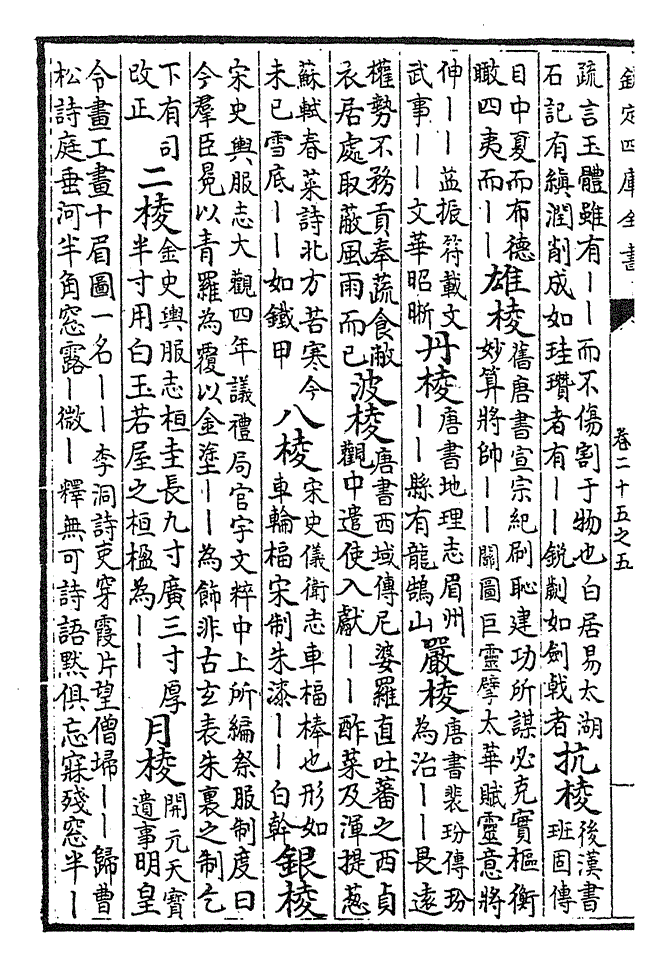 欽定四庫全書
卷二十五之五
疏言玉體雖有丨丨而不傷割于物也白居易太湖
石記有縝潤削成如珪瓚者有丨丨鋭劌如劍戟者
抗棱
後漢書
班固傳
目中夏而布德
瞰四夷而丨丨
雄棱
舊唐書宣宗紀刷恥建功所謀必克實樞衡
妙算將帥丨丨關圖巨靈擘太華賦靈意將
伸丨丨益振符載文
武事丨丨文華昭晣
丹棱
唐書地理志眉州
丨丨縣有龍鵠山
嚴棱
唐書裴玢傳玢
為治丨丨畏遠
權勢不務貢奉蔬食敝
衣居處取蔽風雨而已
波棱
唐書西域傳尼婆羅直吐蕃之西貞
觀中遣使入獻丨丨酢菜及渾提葱
蘇軾春菜詩北方苦寒今
未已雪底丨丨如鐵甲
八棱
宋史儀衛志車輻棒也形如
車輪輻宋制朱漆丨丨白幹
銀棱
宋史輿服志大觀四年議禮局官宇文粹中上所編祭服制度曰
今羣臣冕以青羅為覆以金塗丨丨為飾非古玄表朱裏之制乞
下有司
改正
二棱
金史輿服志桓圭長九寸廣三寸厚
半寸用白玉若屋之桓楹為丨丨
月棱
開元天寶
遺事明皇
令畫工畫十眉圖一名丨丨李洞詩吏穿霞片望僧埽丨丨歸曹
松詩庭垂河半角窓露丨微丨釋無可詩語默俱忘寐殘窓半丨